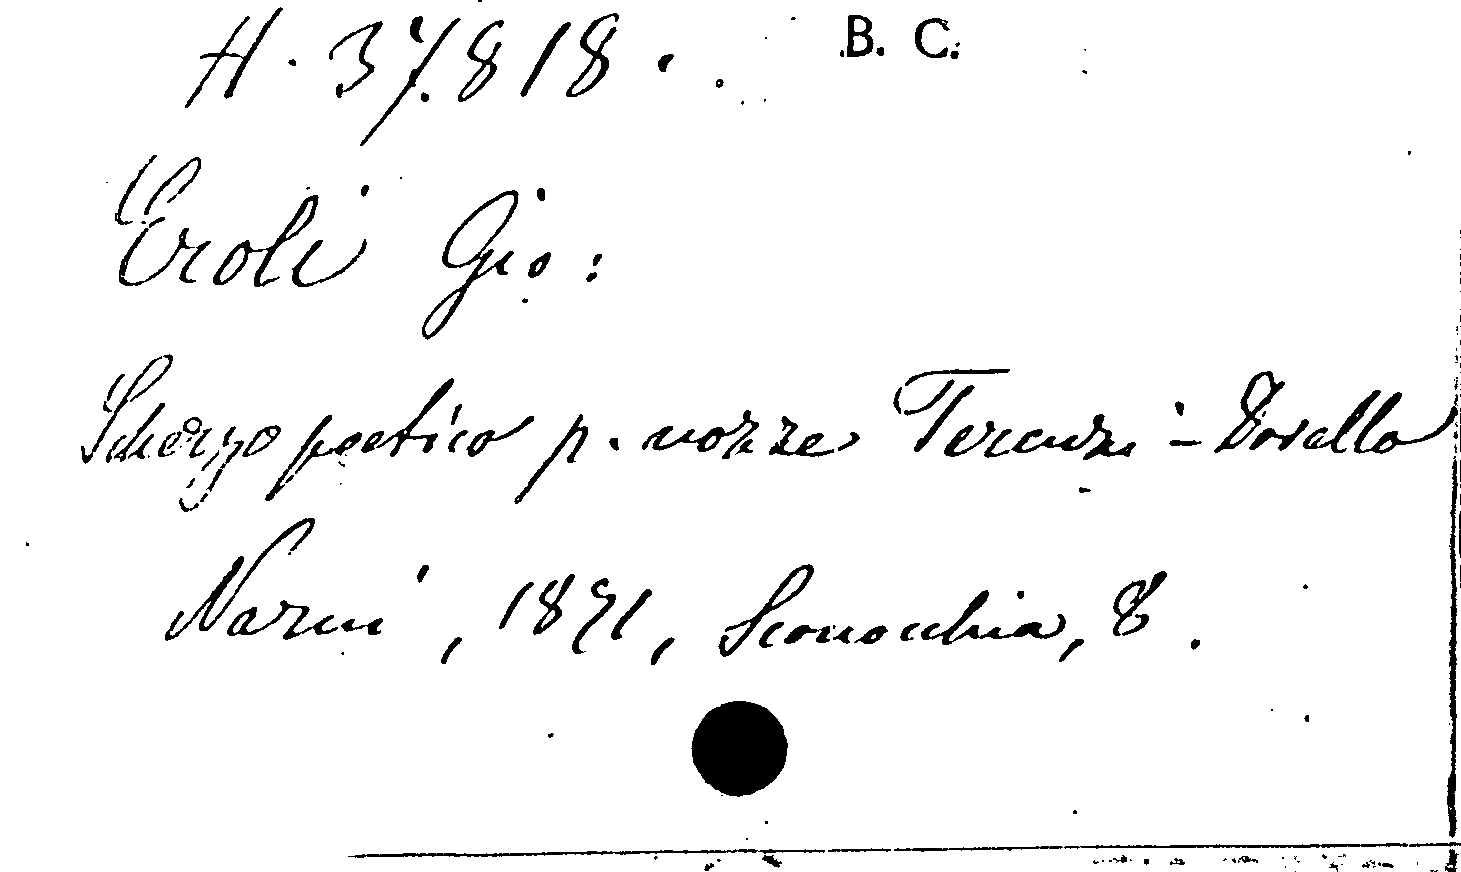 H. 37.818. B. C.
Eroli Gio:
Scherzo poetico p. nozze Terenzi -
Narni, 1871, Sconocchia, 8.